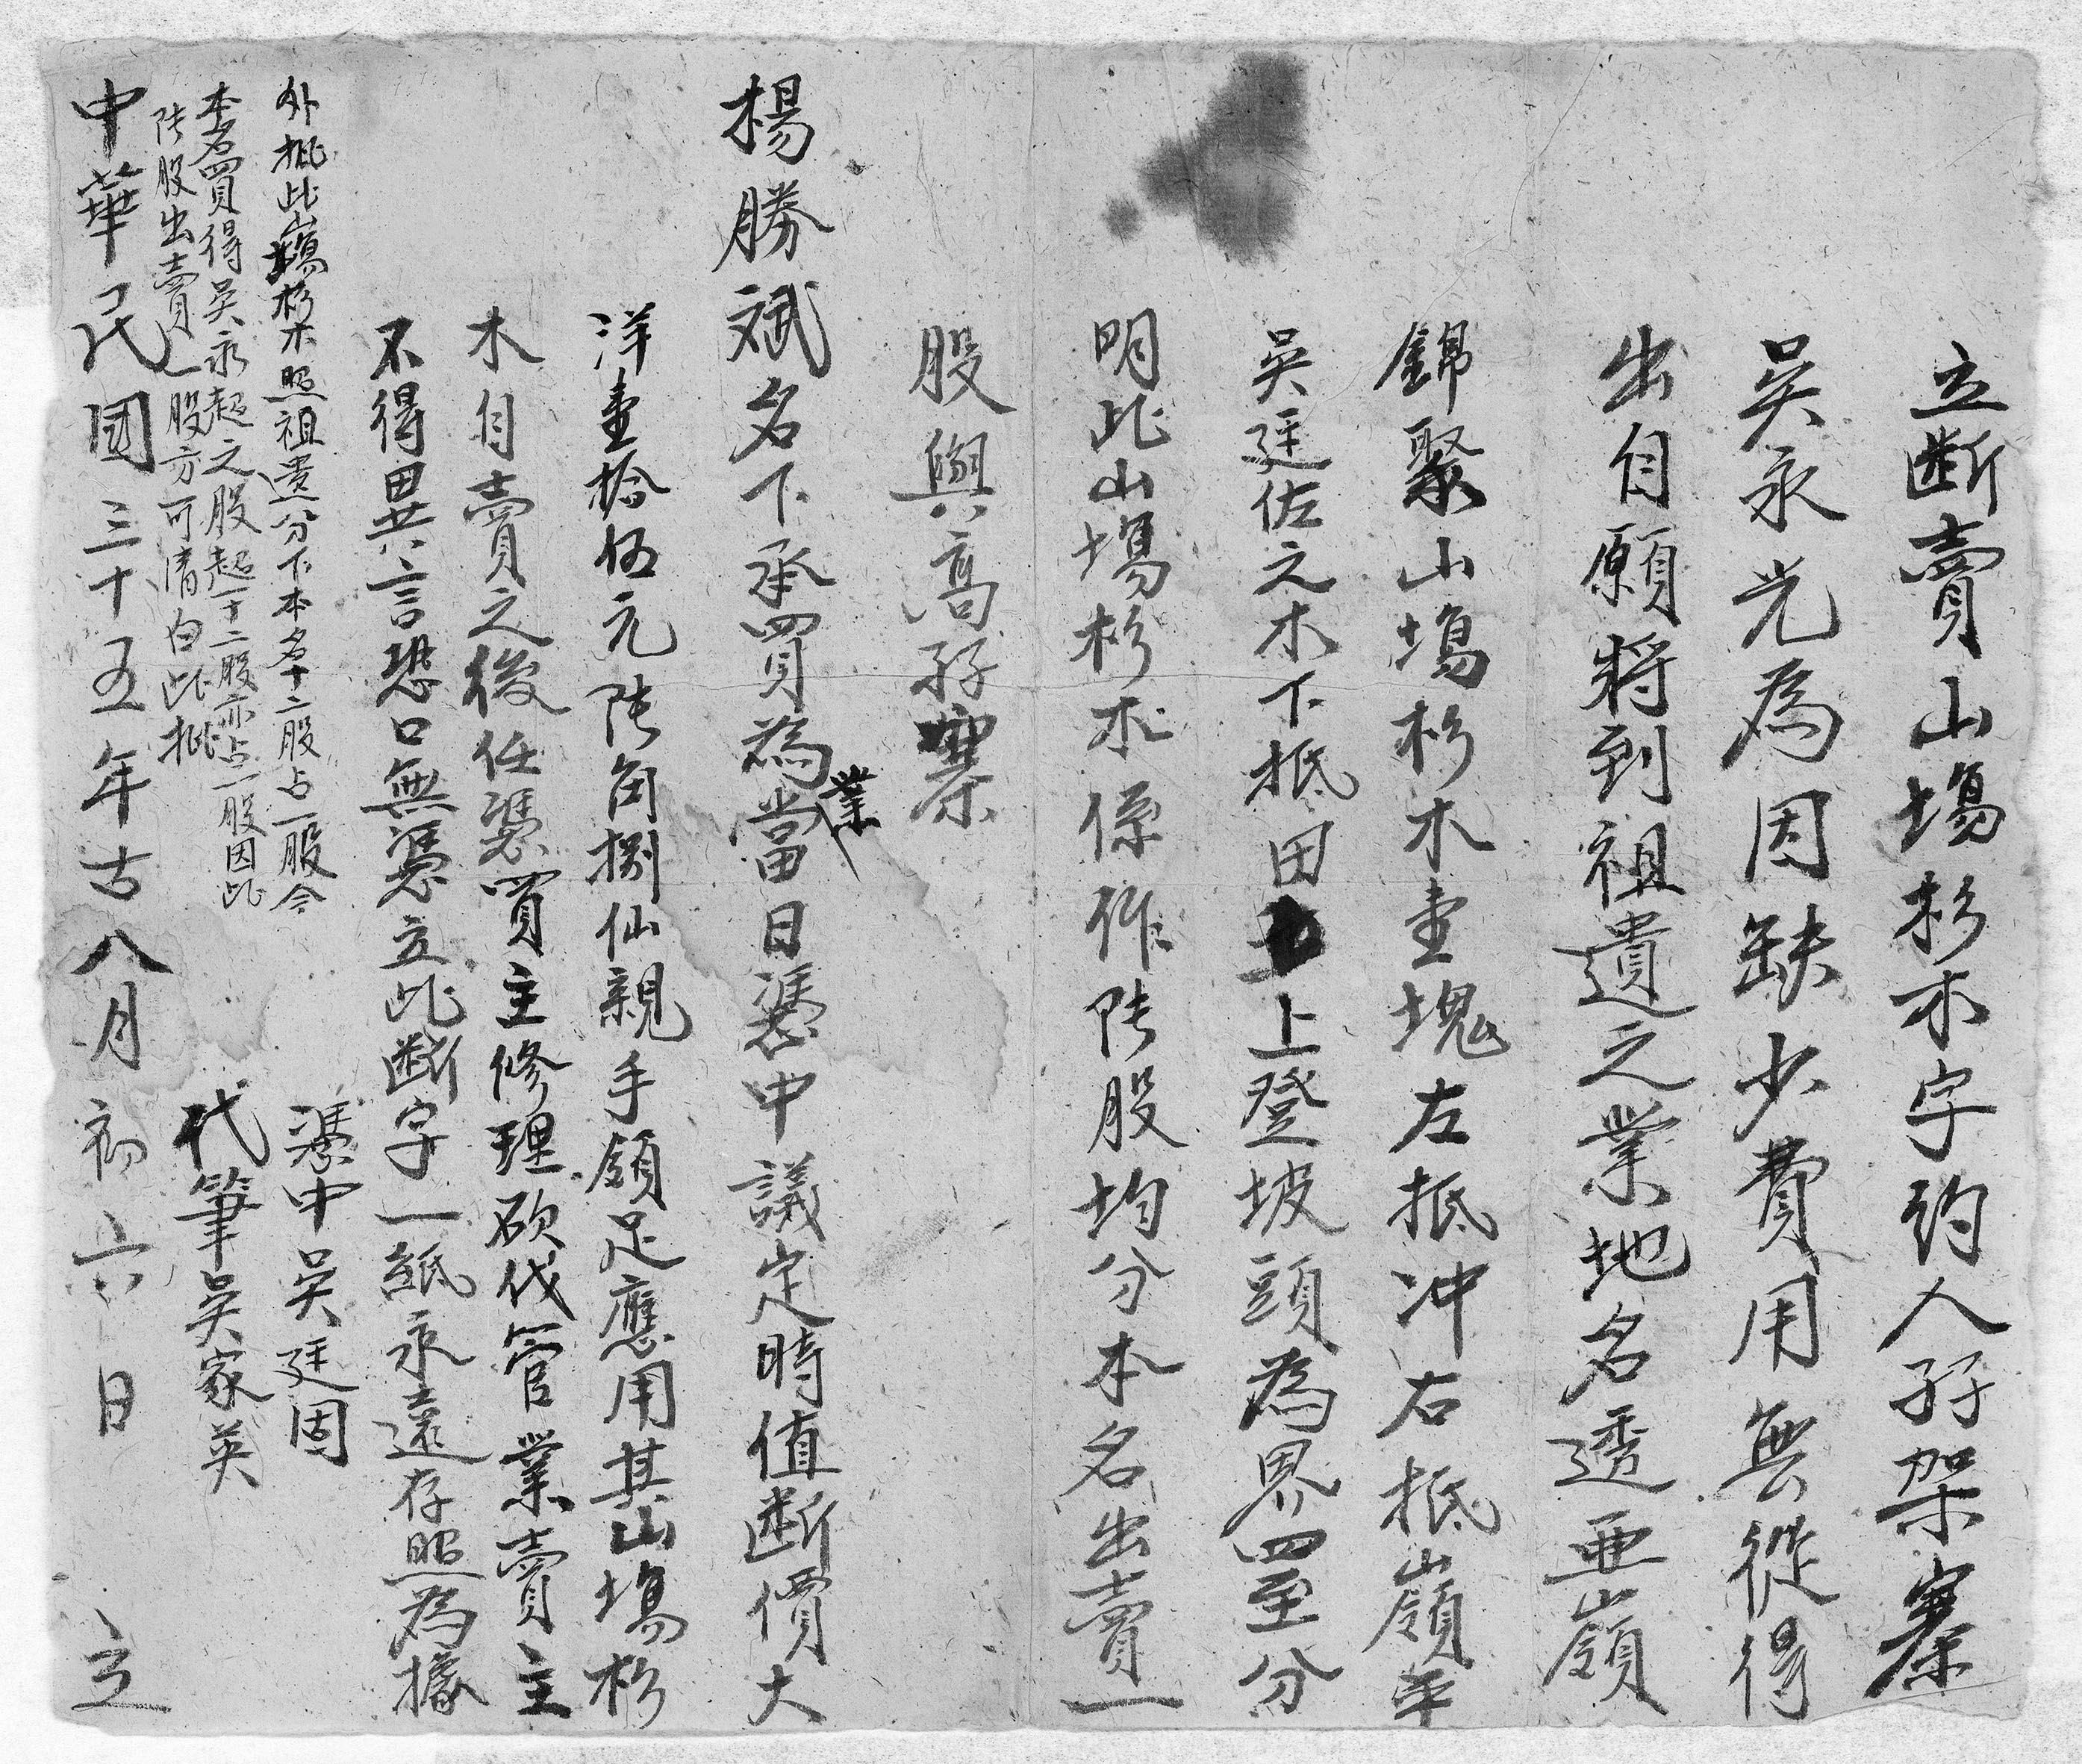 立断賣山塲杉木字約人孖架寨
吴永光為因缺少費用無從得
出自願將到祖遺之業地名透亜嶺
錦聚山塲杉木壹塊左抵冲右抵嶺平
吴廷佐之木下抵田上登坡頭為界四至分
明此山塲杉木係作陸股均分本名出賣一
股與高孖寨
楊勝斌名下承買為業當日憑中議定時值断價大
洋壹拾伍元陸角捌仙親手領足應用其山塲杉
木自賣之後任憑買主修理砍伐管業賣主
不得異言恐口無憑立此断字一紙永遠存照為據
外批此山塲杉木照祖遺分下本名十二股占一股今
本名買得吴永超之股超十二股亦占一股因此
陸股出賣一股方可清白此批
憑中吴廷固
代筆吴家英
中華民國三十五年古八月初六日立